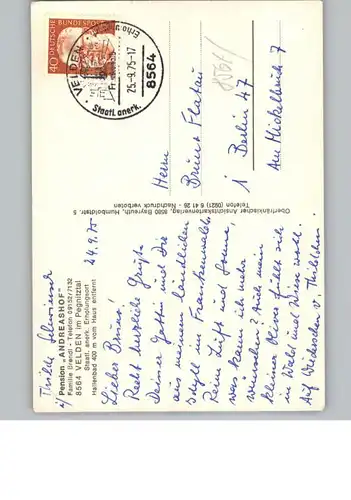 Thilly Schwiensch
z/ Pension „ANDREASHOF"
Familie Brendl - Telefon 09152/7132
8564 VELDEN im Pegnitztal
Staatl. anerk. Erholungsort
Hallenbad 400 m vom Haus entfernt
24.9.75
Lieber Bruno!
Recht herzliche Grüße
Deiner Gattin und Dir
aus meinem ländlichen
Idyll im Frankenwald.
Reine Luft und Sonne,
was kann ich mehr
wünschen? Auch mein
kleiner Oliver fühlt sich
in Wald und Wiese wohl.
Auf Wiedersehen v. Thillchen
Oberfränkischer Ansichtskartenverlag, 8580 Bayreuth, Humboldtstr. 5
Telefon (0921) 6 41 26 - Nachdruck verboten
40 DEUTSCHE BUNDESPOST
VELDEN
25.-9.75-17
8564
Staatl. anerk.
Herrn
Bruno Flatau
1 Berlin 47
Am Mickelbruch 7